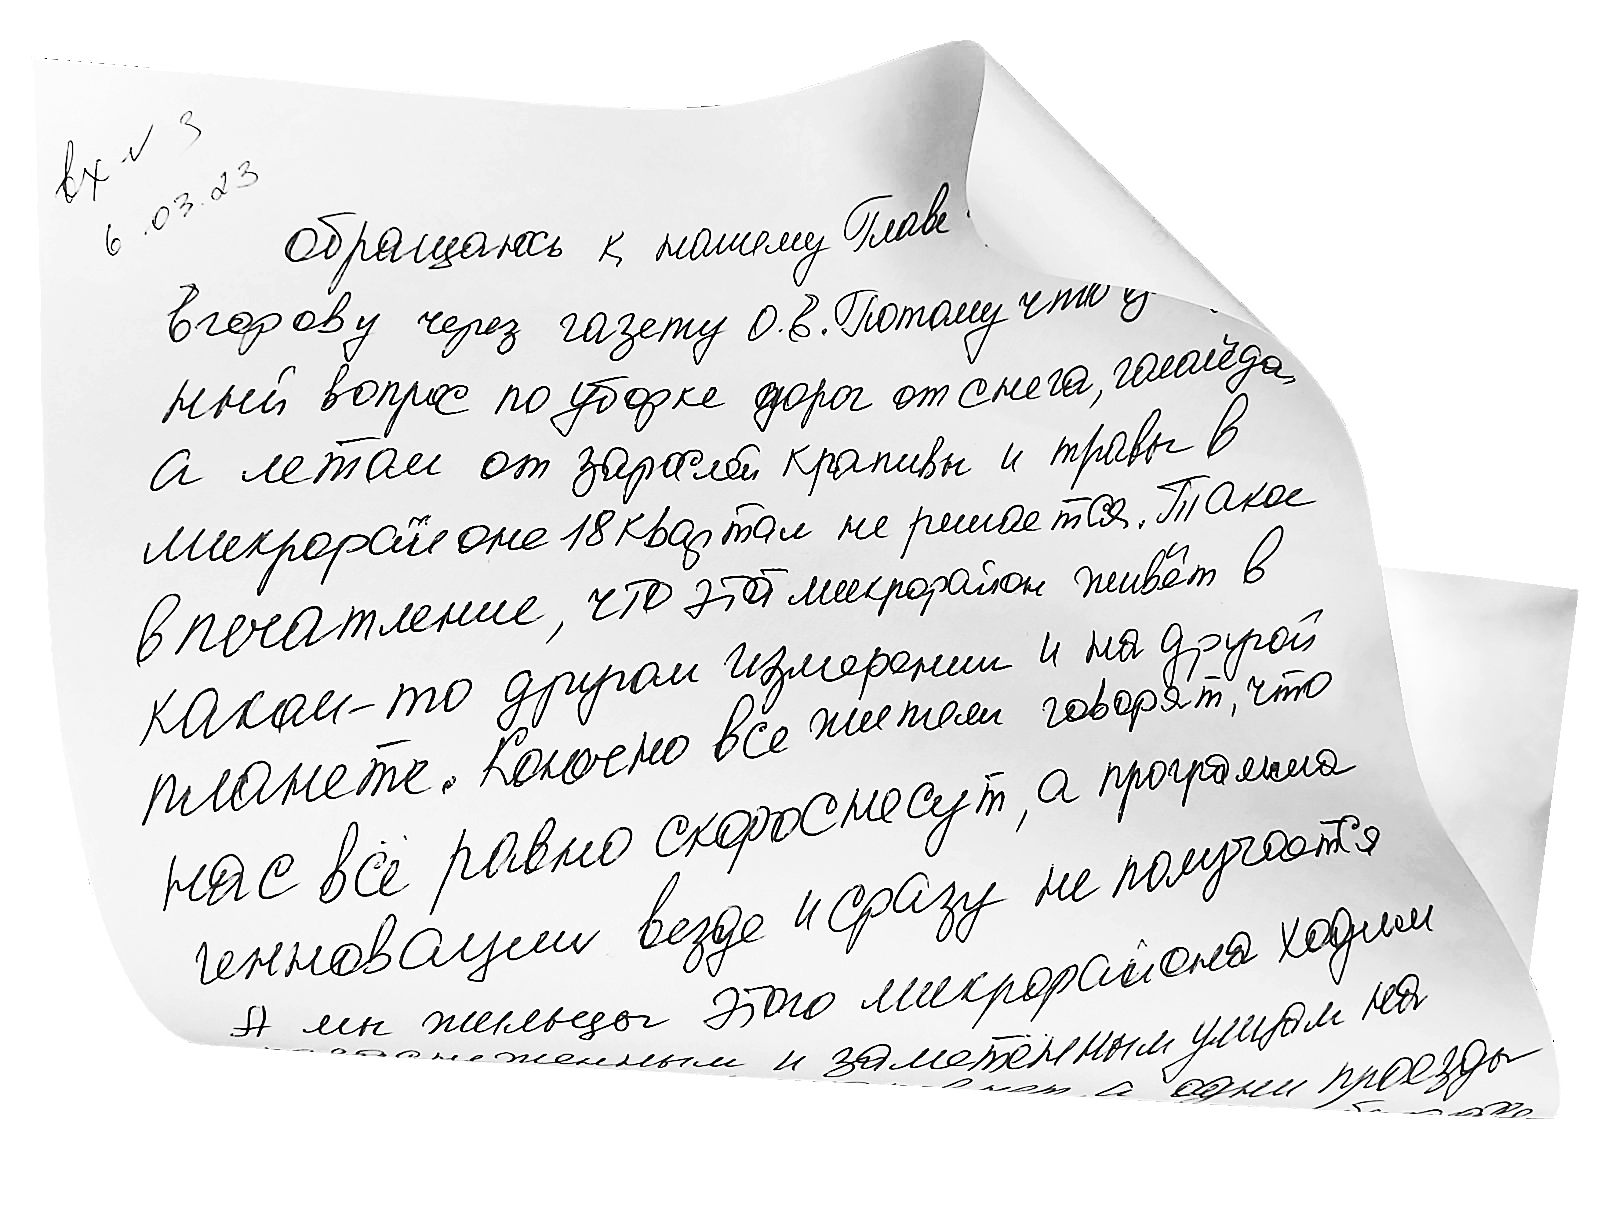 вх № 3
6.03.23
Обращаюсь к нашему Главе
Егорову через газету О.В. Потому что
ный вопрос по уборке дорог от снега, гололёда,
а летом от зарослей крапивы и травы в
микрорайоне 18 квартал не решается. Такое
впечатление, что этот микрорайон живёт в
каком-то другом измерении и на другой
планете. Конечно все жители говорят, что
нас всё равно скоро снесут, а программа
генновации везде и сразу не получается
А мы жильцы этого микрорайона ходим
и заметённым улицам на
а одни проезды